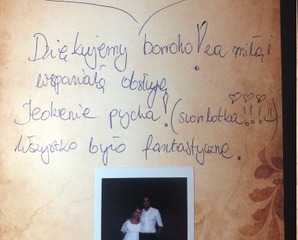 Dziękujemy bardzo! za miłą i
wspaniałą obsługę
Jedzenie pycha! (szarlotka!!!)
Wszystko było fantastyczne.